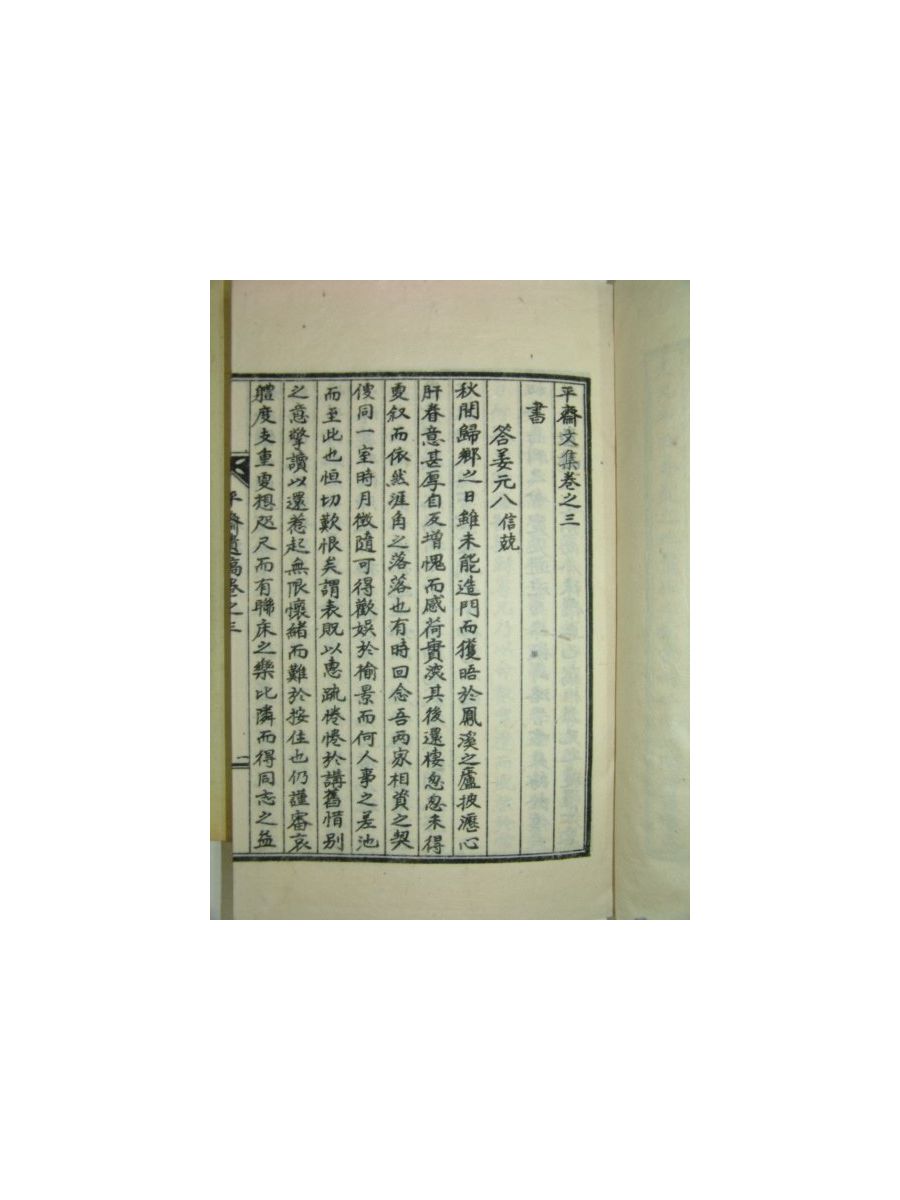 平齋文集卷之三
書
答姜元八信兢
秋間歸鄉之日雖未能造門而獲晤於鳳溪之廬披瀝心
肝眷意甚厚自反增愧而感荷實深其後還棲忽忽未得
更叙而依然涯角之落落也有時回念吾兩家相資之契
便同一室時月徵隨可得歡娛於楡景而何人事之差池
而至此也恒切歎恨矣謂表貺以惠疏惓惓於講舊惜別
之意擎讀以還惹起無限懷緒而難於按住也仍謹審哀
體度支重更想咫尺而有聯床之樂比隣而得同志之益
平齋遺稿卷之三
一